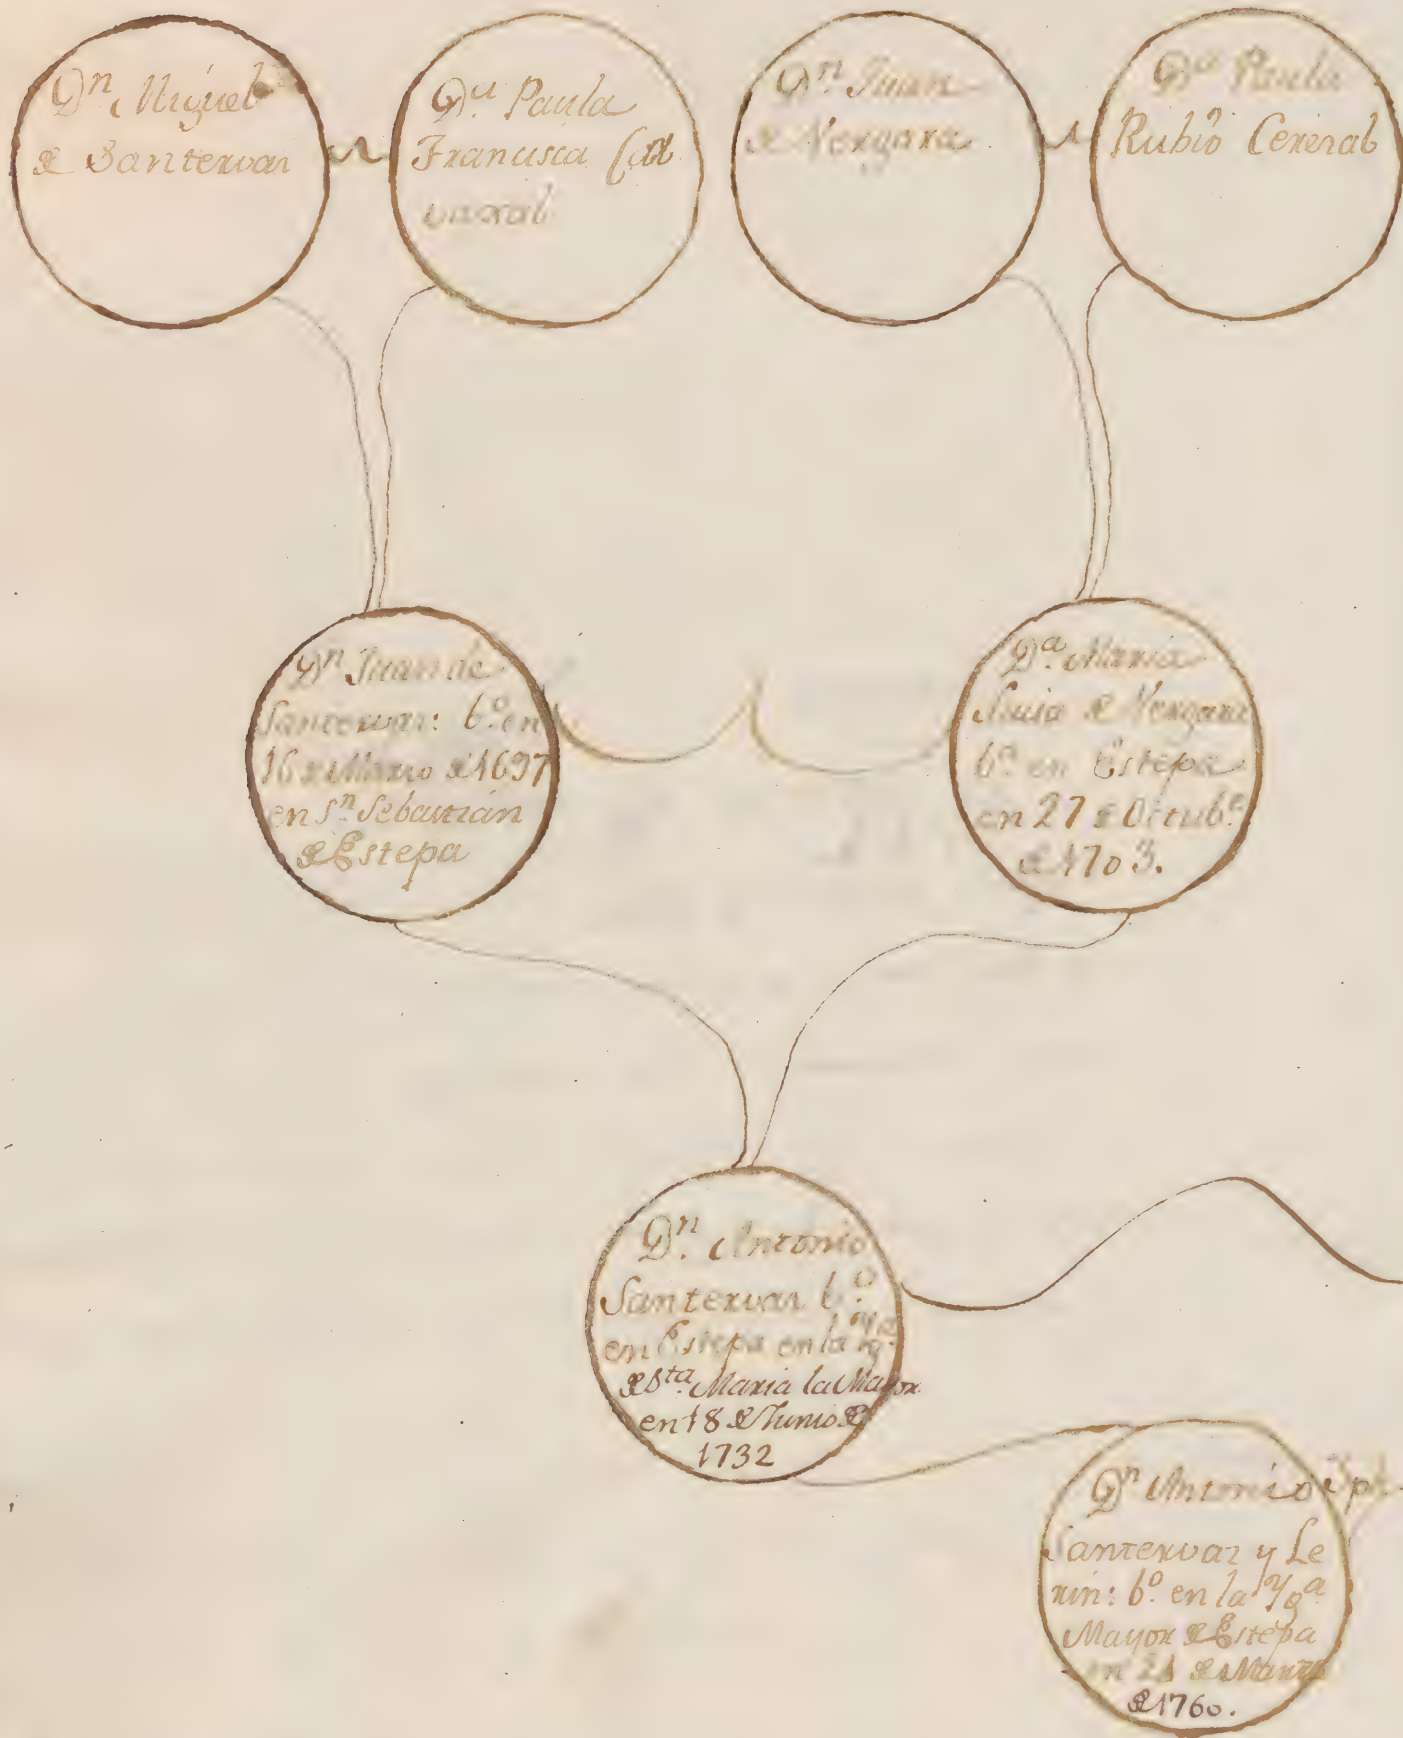 Dⁿ. Miguel
de Santervar
Dª. Paula
Francisca Car
vaxal
Dⁿ. Juan
de Vergara
Dª Paula
Rubio Cerenal
Dⁿ Juan de
Santervar: bº. en
16 de Marzo de 1697
en Sⁿ. Sebastián
de Estepa
Dª. Maria
Luisa de Vergara
bª. en Estepa
en 27 de Octubᵉ.
de 1703.
Dⁿ. Antonio
Santervar bº.
en Estepa en la Ygª.
de Sᵗᵃ. Maria la Mayor
en 18 de Junio de
1732
Dⁿ Antonio Jph.
Santervar y Le
rin: bº. en la Ygª.
Mayor de Estepa
en de Marzo
de 1760.